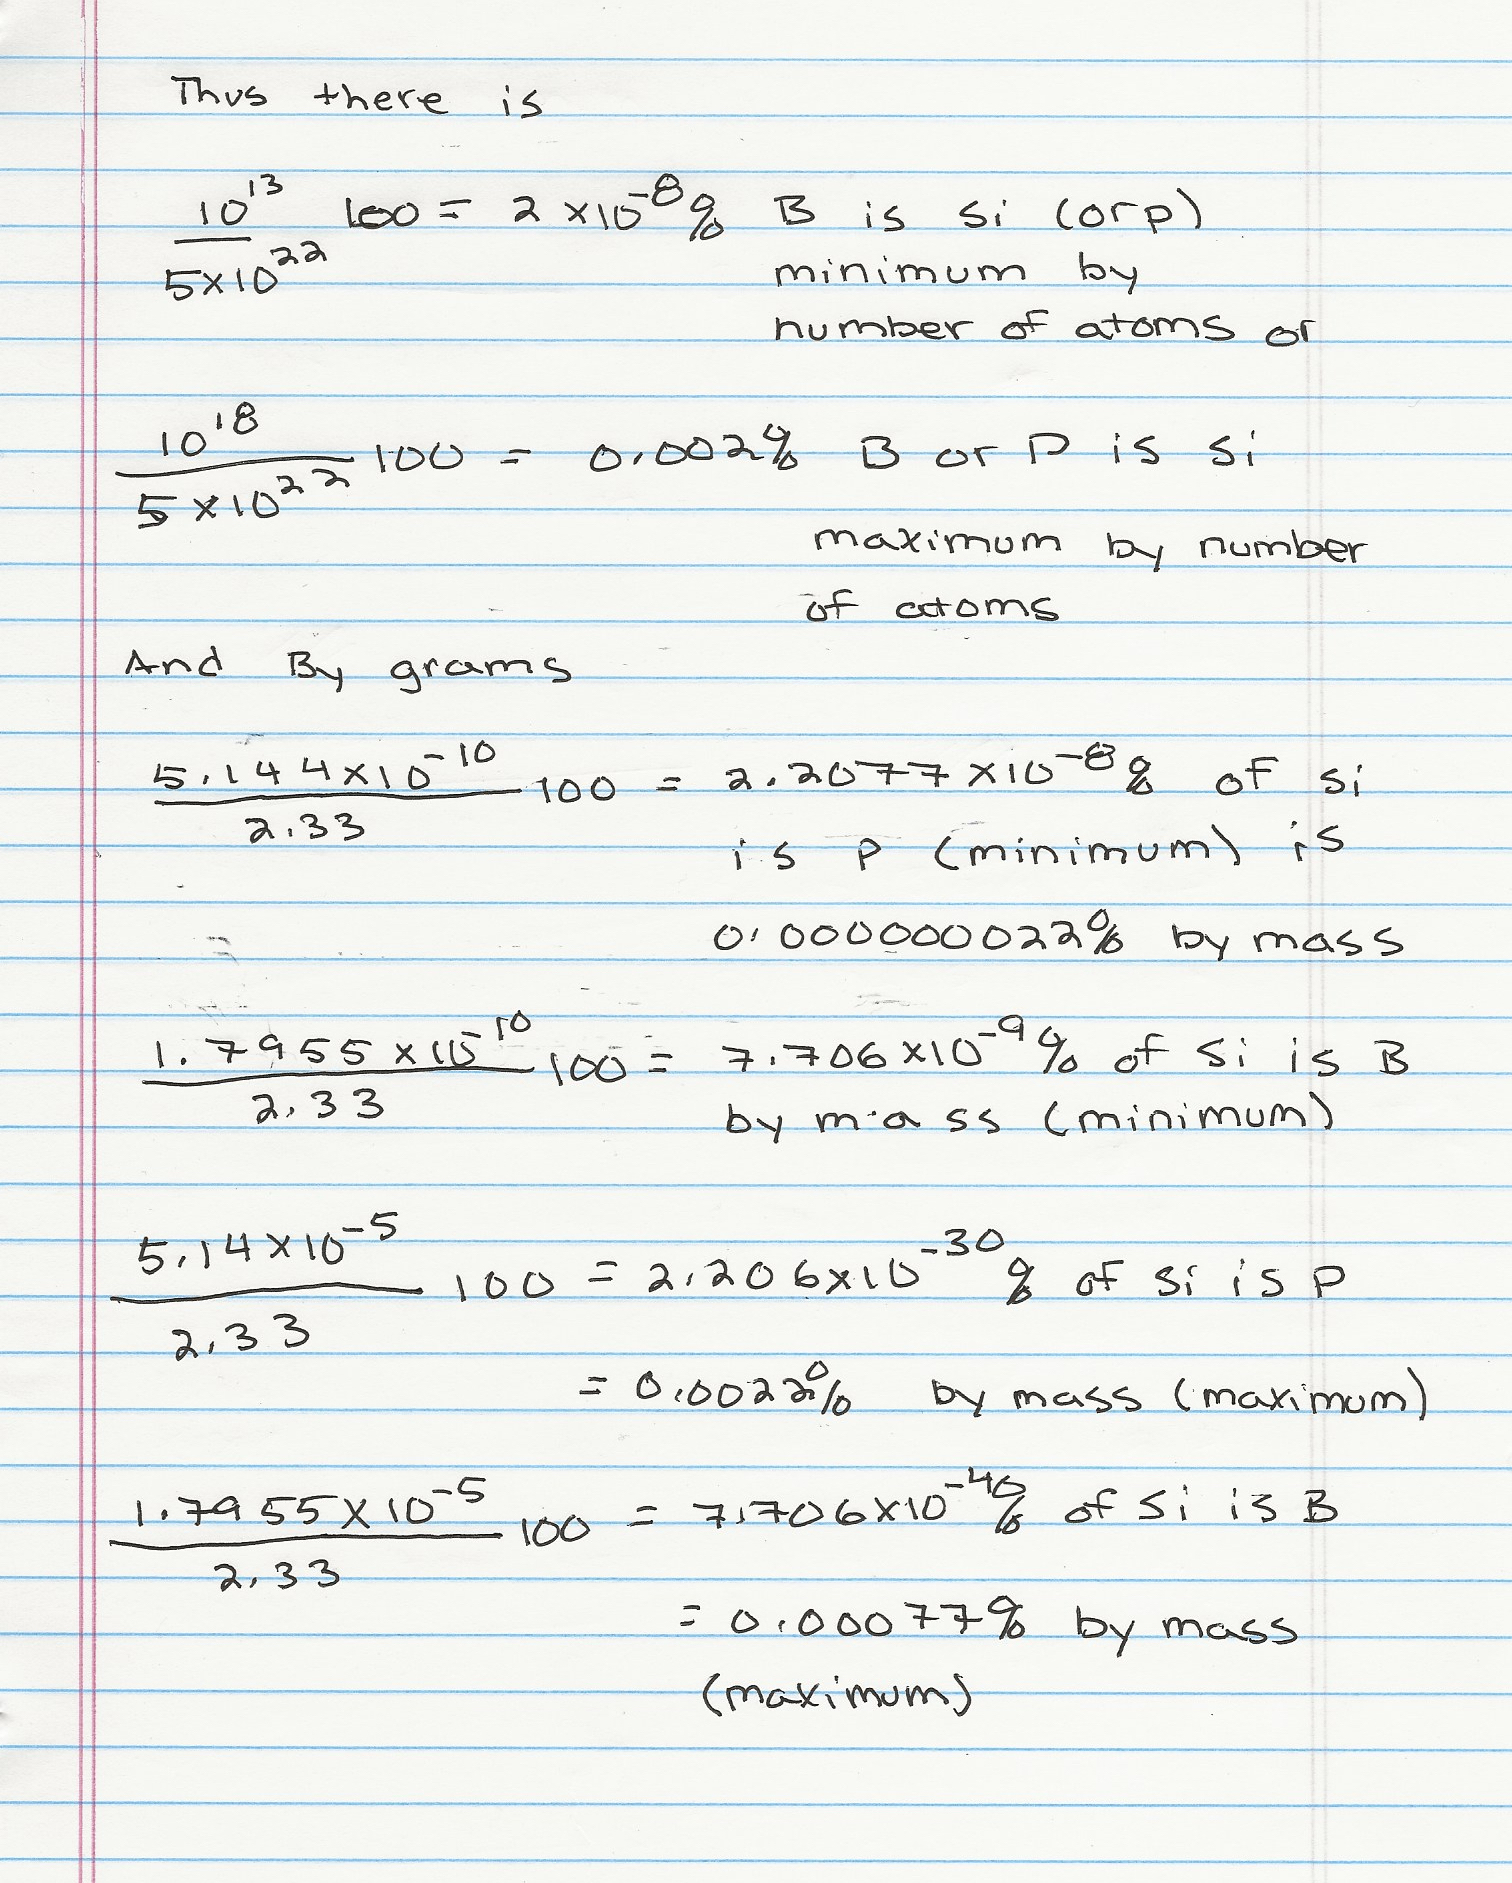 Thus there is
10^13 / 5×10^22 100 = 2×10^-8 % B is Si (or P)
minimum by
number of atoms or
10^18 / 5×10^22 100 = 0.002% B or P is Si
maximum by number
of atoms
And By grams
5.144×10^-10 / 2.33 100 = 2.2077×10^-8 % of Si
is P (minimum) is
0.000000022% by mass
1.7955×10^-10 / 2.33 100 = 7.706×10^-9 % of Si is B
by mass (minimum)
5.14×10^-5 / 2.33 100 = 2.206×10^-30 % of Si is P
= 0.0022% by mass (maximum)
1.7955×10^-5 / 2.33 100 = 7.706×10^-40 % of Si is B
= 0.00077% by mass
(maximum)